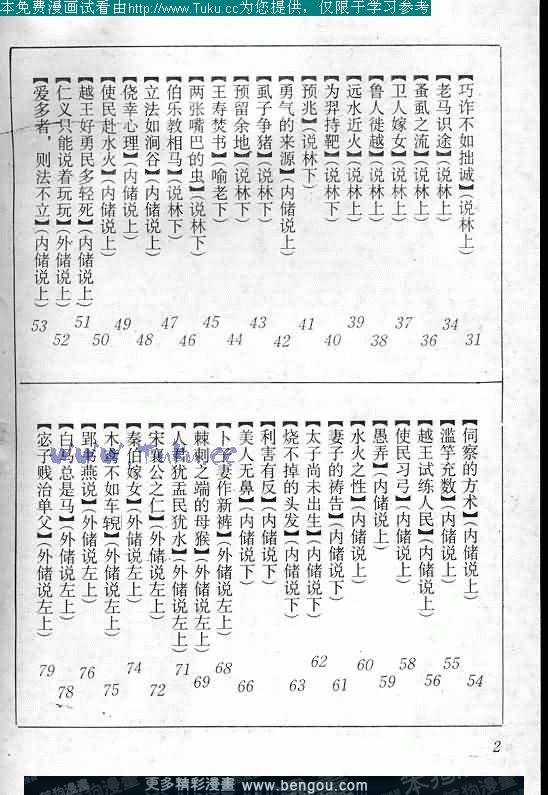 本免费漫画试看由http://www.Tuku.cc为您提供，仅限于学习参考
【巧诈不如拙诚】（说林上） 31
【老马识途】（说林上） 34
【蚤虱之流】（说林上） 36
【卫人嫁女】（说林上） 37
【鲁人徙越】（说林上） 38
【远水近火】（说林上） 39
【为羿持靶】（说林下） 40
【预兆】（说林下） 41
【勇气的来源】（内储说上） 42
【虱子争猪】（说林下） 43
【预留余地】（说林下） 44
【王寿焚书】（喻老下） 45
【两张嘴巴的虫】（说林下） 46
【伯乐教相马】（说林下） 47
【立法如涧谷】（内储说上） 48
【侥幸心理】（内储说上） 49
【使民赴水火】（内储说上） 50
【越王好勇民多轻死】（内储说上） 51
【仁义只能说着玩玩】（外储说上） 52
【爱多者，则法不立】（内储说上） 53
【伺察的方术】（内储说上） 54
【滥竽充数】（内储说上） 55
【越王试练人民】（内储说上） 56
【使民习弓】（内储说上） 58
【愚弄】（内储说上） 59
【水火之性】（内储说上） 60
【妻子的祷告】（内储说下） 61
【太子尚未出生】（内储说下） 62
【烧不掉的头发】（内储说下） 63
【利害有反】（内储说下）
【美人无鼻】（内储说下） 66
【卜子妻作新裤】（外储说左上） 68
【棘刺之端的母猴】（外储说左上） 69
【人君犹盂民犹水】（外储说左上） 71
【宋襄公之仁】（外储说左上） 72
【秦伯嫁女】（外储说左上） 74
【木鸢不如车輗】（外储说左上） 75
【郢书燕说】（外储说左上） 76
【白马总是马】（外储说左上） 78
【宓子贱治单父】（外储说左上） 79
www.Tuku.cc
2
更多精彩漫畫 www.bengou.com